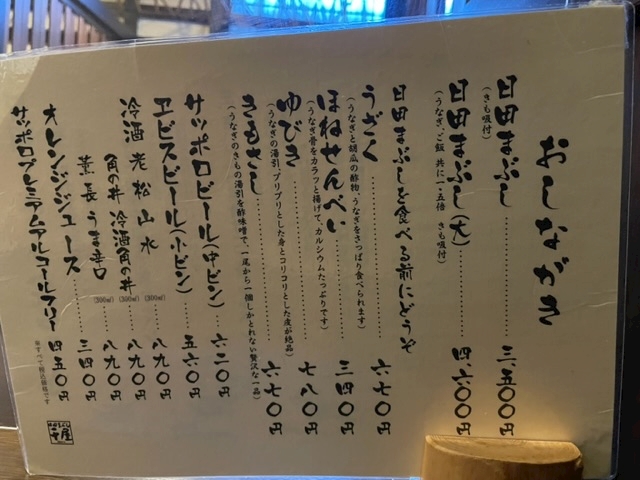 おしながき
日田まぶし 三五〇〇円
(きも吸付)
日田まぶし(大) 四、六〇〇円
(うなぎ、ご飯 共に一・五倍 きも吸付)
日田まぶしを食べる前にどうぞ
うざく 六七〇円
(うなぎと胡瓜の酢物、うなぎをさっぱり食べられます)
ほねせんべい 三四〇円
(うなぎ骨をカラッと揚げて、カルシウムたっぷりです)
ゆびき 七八〇円
(うなぎの湯引、プリプリとした身とコリコリとした皮が絶品)
きもさし 六七〇円
(うなぎのきもの湯引を酢味噌で、一尾から一個しかとれない贅沢な一品)
サッポロビール(中ビン) 六二〇円
ヱビスビール(小ビン) 五六〇円
冷酒 老松 山水 (300㎖) 八九〇円
角の井 冷酒角の井 (300㎖) 八九〇円
薫長 うま辛口 (300㎖) 八九〇円
オレンジジュース 三四〇円
サッポロプレミアムアルコールフリー 四五〇円
※すべて税込価格です